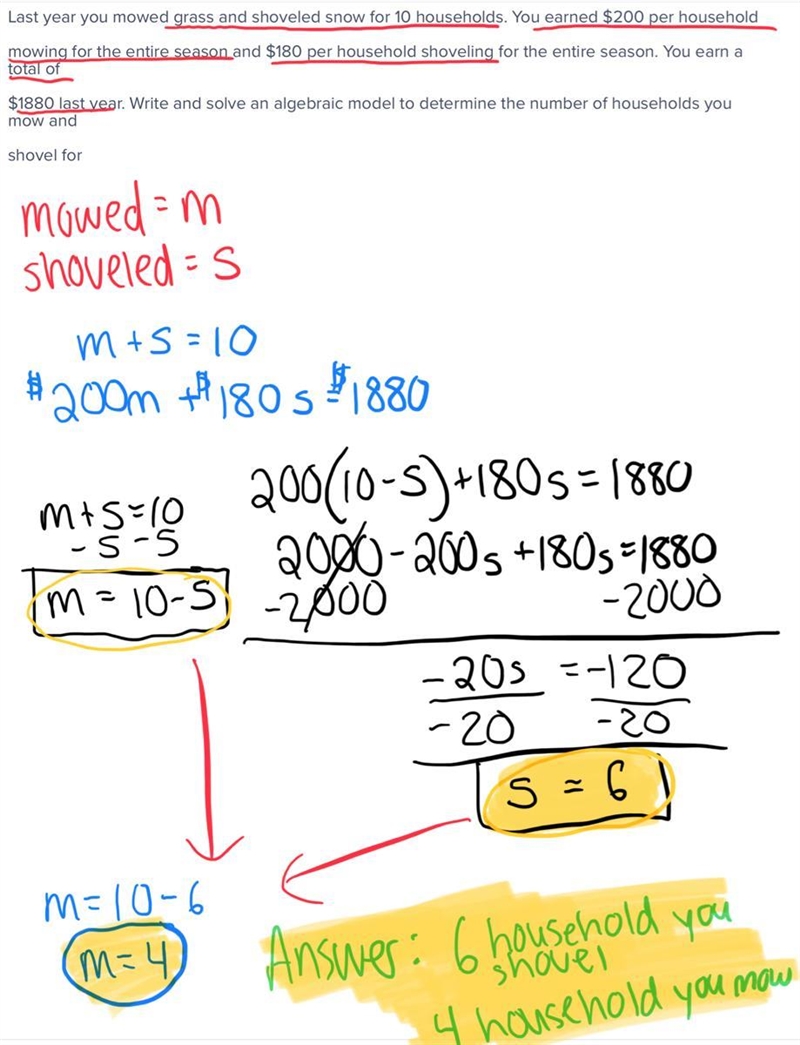 Last year you mowed grass and shoveled snow for 10 households. You earned $200 per household
mowing for the entire season and $180 per household shoveling for the entire season. You earn a
total of
$1880 last year. Write and solve an algebraic model to determine the number of households you
mow and
shovel for
mowed = m
shoveled = s
m + s = 10
$200m + $180s = $1880
m + s = 10
- s - s
m = 10 - s
200(10 - s) + 180s = 1880
2000 - 200s + 180s = 1880
-2000 -2000
-20s = -120
-20 -20
s = 6
m = 10 - 6
m = 4
Answer: 6 household you
shovel
4 household you mow